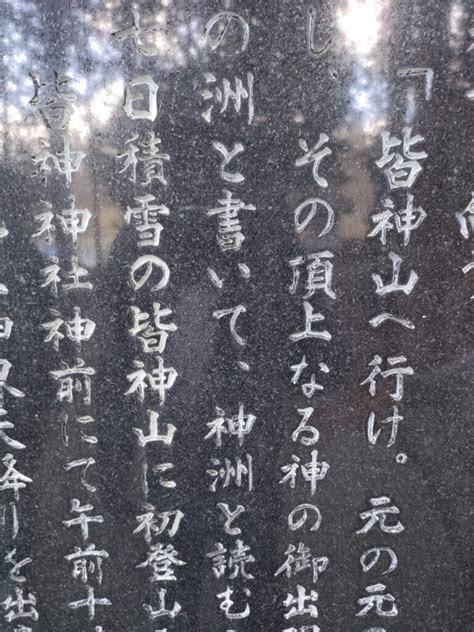 「皆神山へ行け。元の元
し、その頂上なる神の御出
の洲と書いて、神洲と読む
七日積雪の皆神山に初登山
皆神神社神前にて午前十
天降りを出